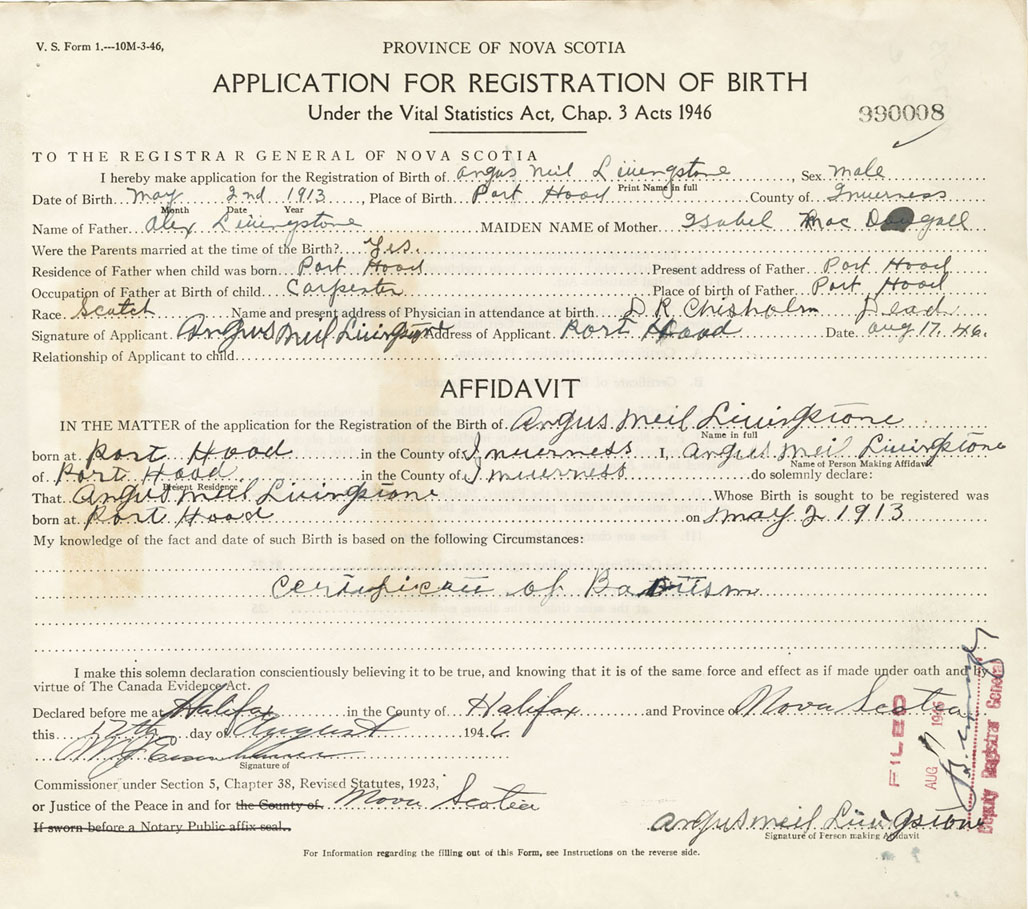 V. S. Form 1.---10M-3-46,
PROVINCE OF NOVA SCOTIA
APPLICATION FOR REGISTRATION OF BIRTH
Under the Vital Statistics Act, Chap. 3 Acts 1946
990008
TO THE REGISTRAR GENERAL OF NOVA SCOTIA
I hereby make application for the Registration of Birth of Angus Neil Livingstone, Sex male
Print Name in full
Date of Birth May 2nd 1913, Place of Birth Port Hood County of Inverness
Month Date Year
Name of Father Alex Livingstone MAIDEN NAME of Mother Isabel MacDougall
Were the Parents married at the time of the Birth? Yes.
Residence of Father when child was born Port Hood Present address of Father Port Hood
Occupation of Father at Birth of child Carpenter Place of birth of Father Port Hood
Race Scotch Name and present address of Physician in attendance at birth D R Chisholm Dead
Signature of Applicant Angus Neil Livingstone Address of Applicant Port Hood Date Aug 17. 46.
Relationship of Applicant to child
AFFIDAVIT
IN THE MATTER of the application for the Registration of Birth of Angus Neil Livingstone
Name in full
born at Port Hood in the County of Inverness I, Angus Neil Livingstone
Name of Person Making Affidavit
of Port Hood in the County of Inverness do solemnly declare:
Present Residence
That Angus Neil Livingstone Whose Birth is sought to be registered was
born at Port Hood on May 2 1913
My knowledge of the fact and date of such Birth is based on the following Circumstances:
Certificate of Baptism
I make this solemn declaration conscientiously believing it to be true, and knowing that it is of the same force and effect as if made under oath and by
virtue of The Canada Evidence Act.
Declared before me at Halifax in the County of Halifax and Province of Nova Scotia
this 17th day of August 1946
Signature of
Commissioner under Section 5, Chapter 38, Revised Statutes, 1923,
or Justice of the Peace in and for the County of Nova Scotia
If sworn before a Notary Public affix seal.
Angus Neil Livingstone
Signature of Person making Affidavit
For Information regarding the filling out of this Form, see Instructions on the reverse side.
FILED
AUG 17 1946
Deputy Registrar General